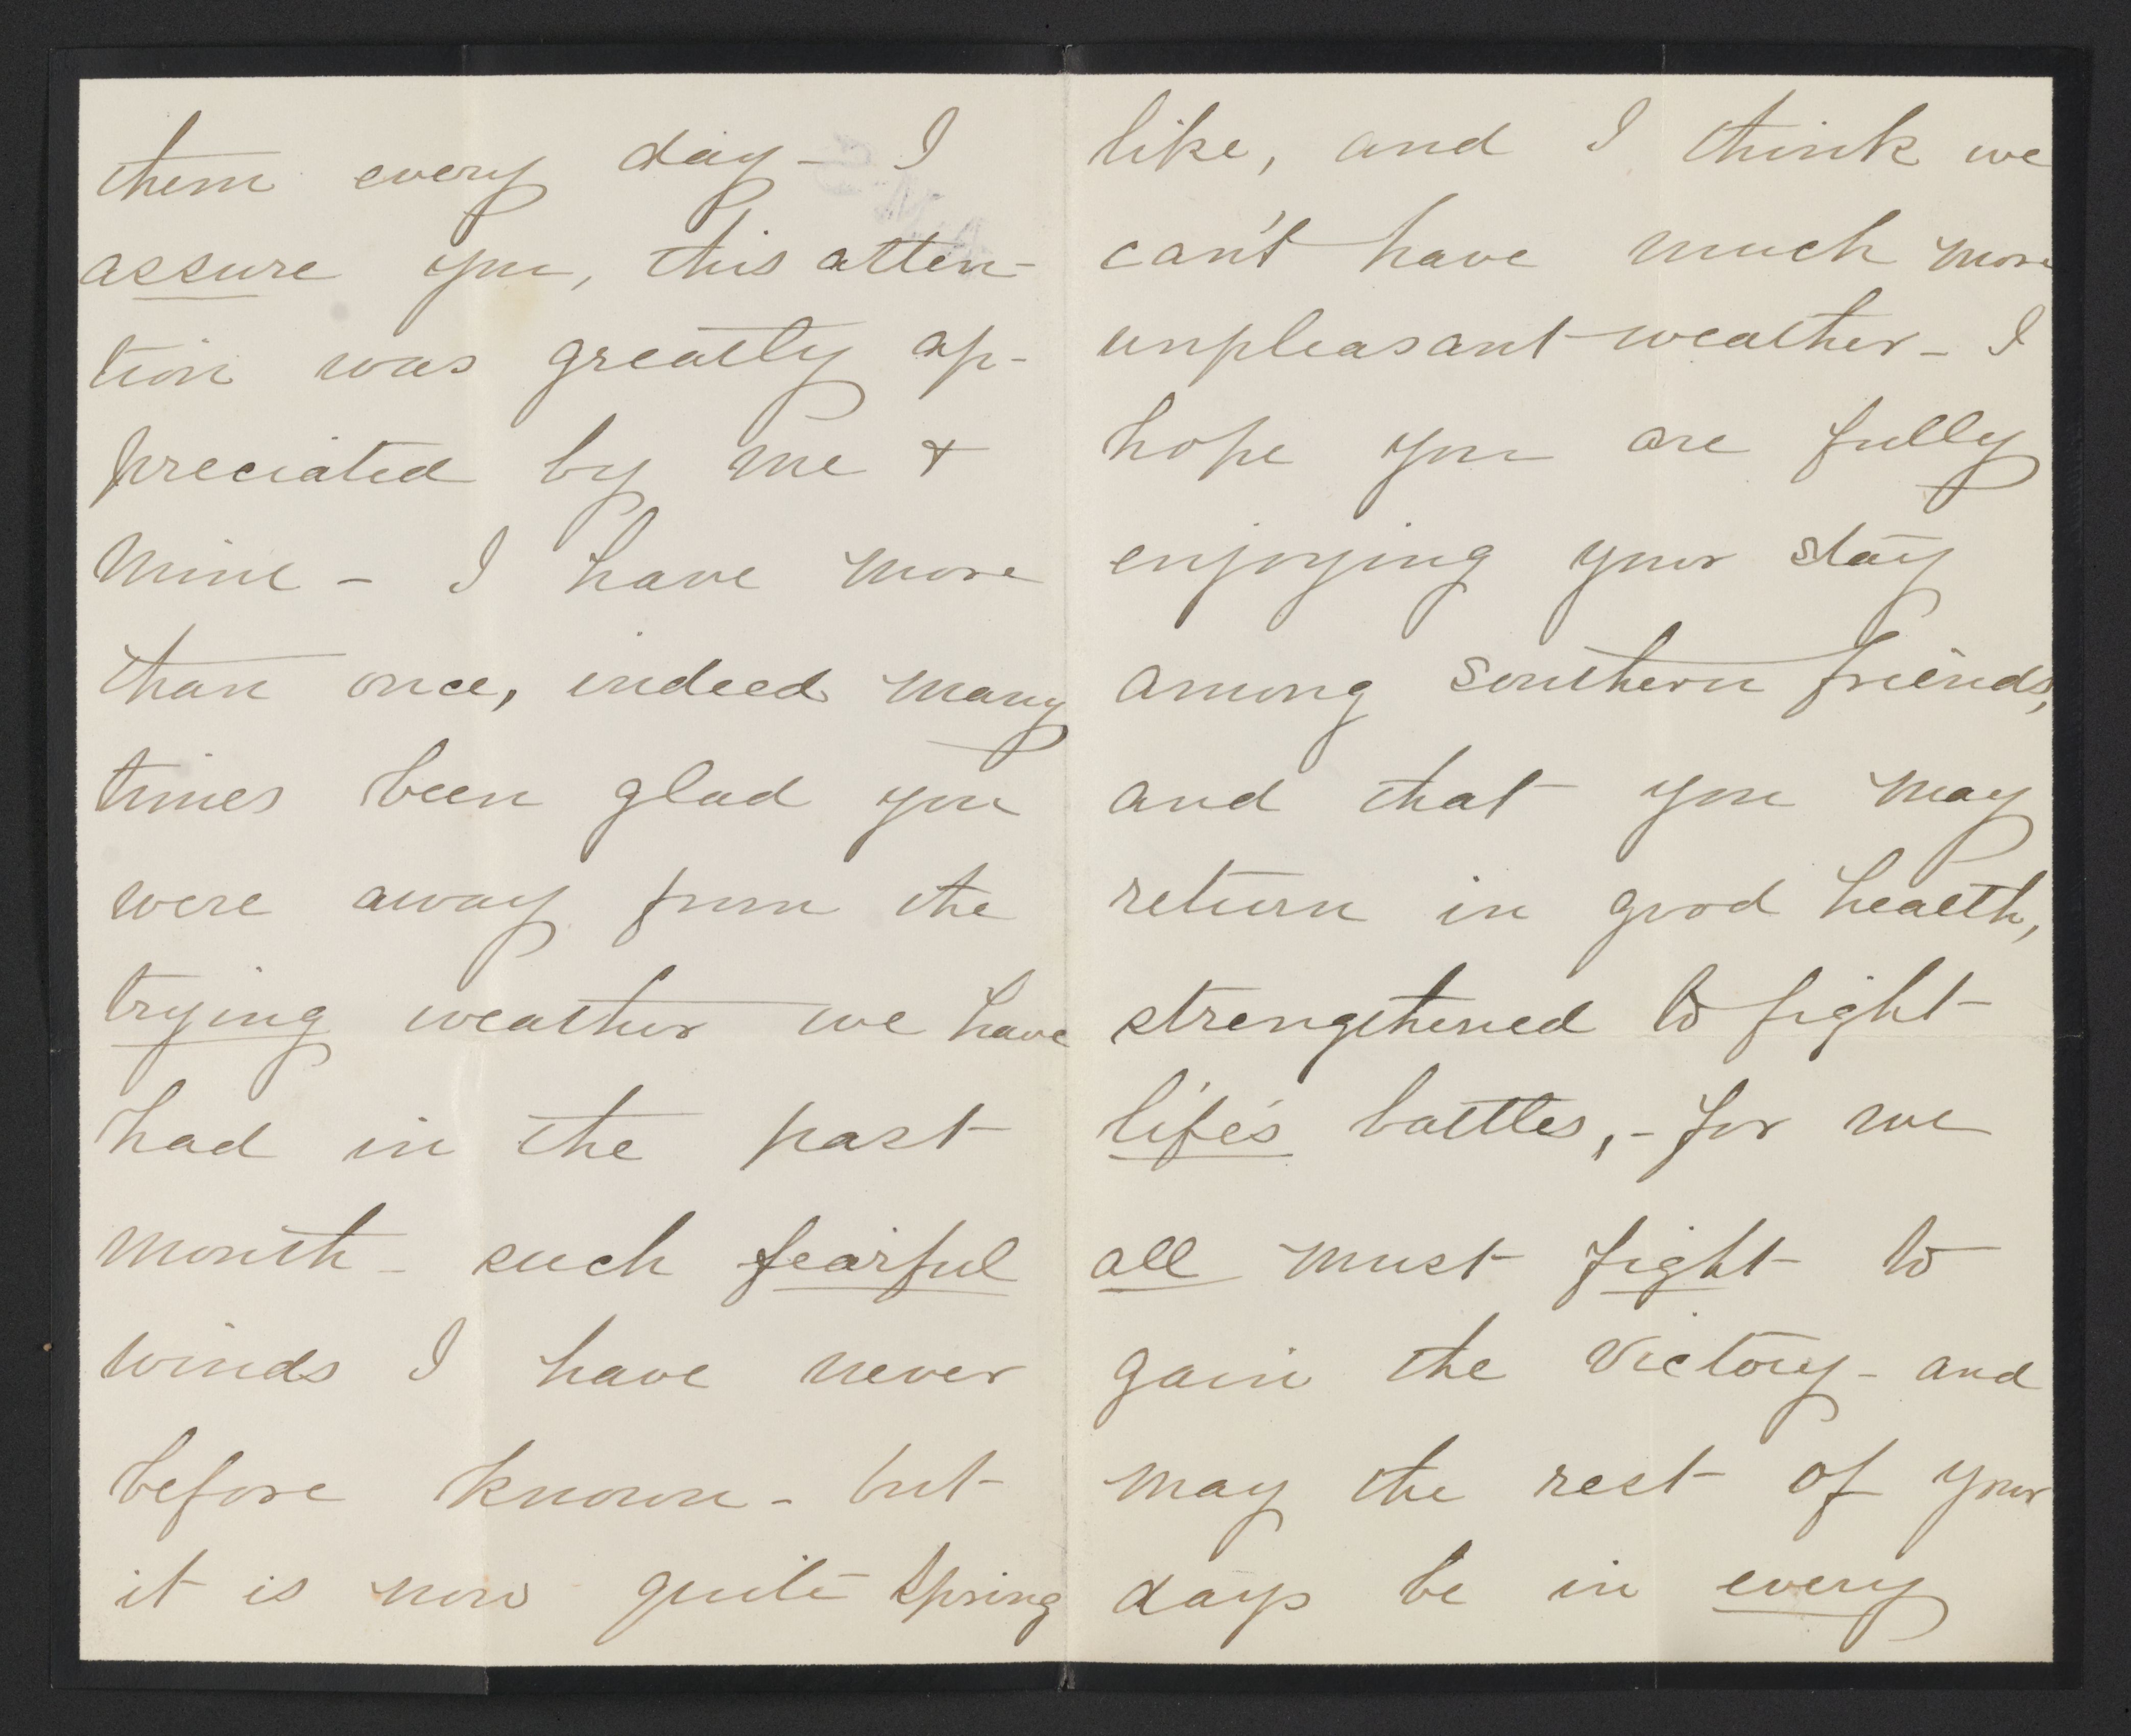 them every day - I
assure you, this atten-
tion was greatly ap-
preciated by me &
mine - I have more
than once, indeed many
times been glad you
were away from the
trying weather we have
had in the past
month - such fearful
winds I have never
before known - but
it is now quite Spring
like, and I think we
can't have much more
unpleasant weather - I
hope you are fully
enjoying your stay
among Southern friends,
and that you may
return in good health,
strengthened to fight
life's battles, - for we
all must fight to
gain the victory - and
may the rest of your
days be in every